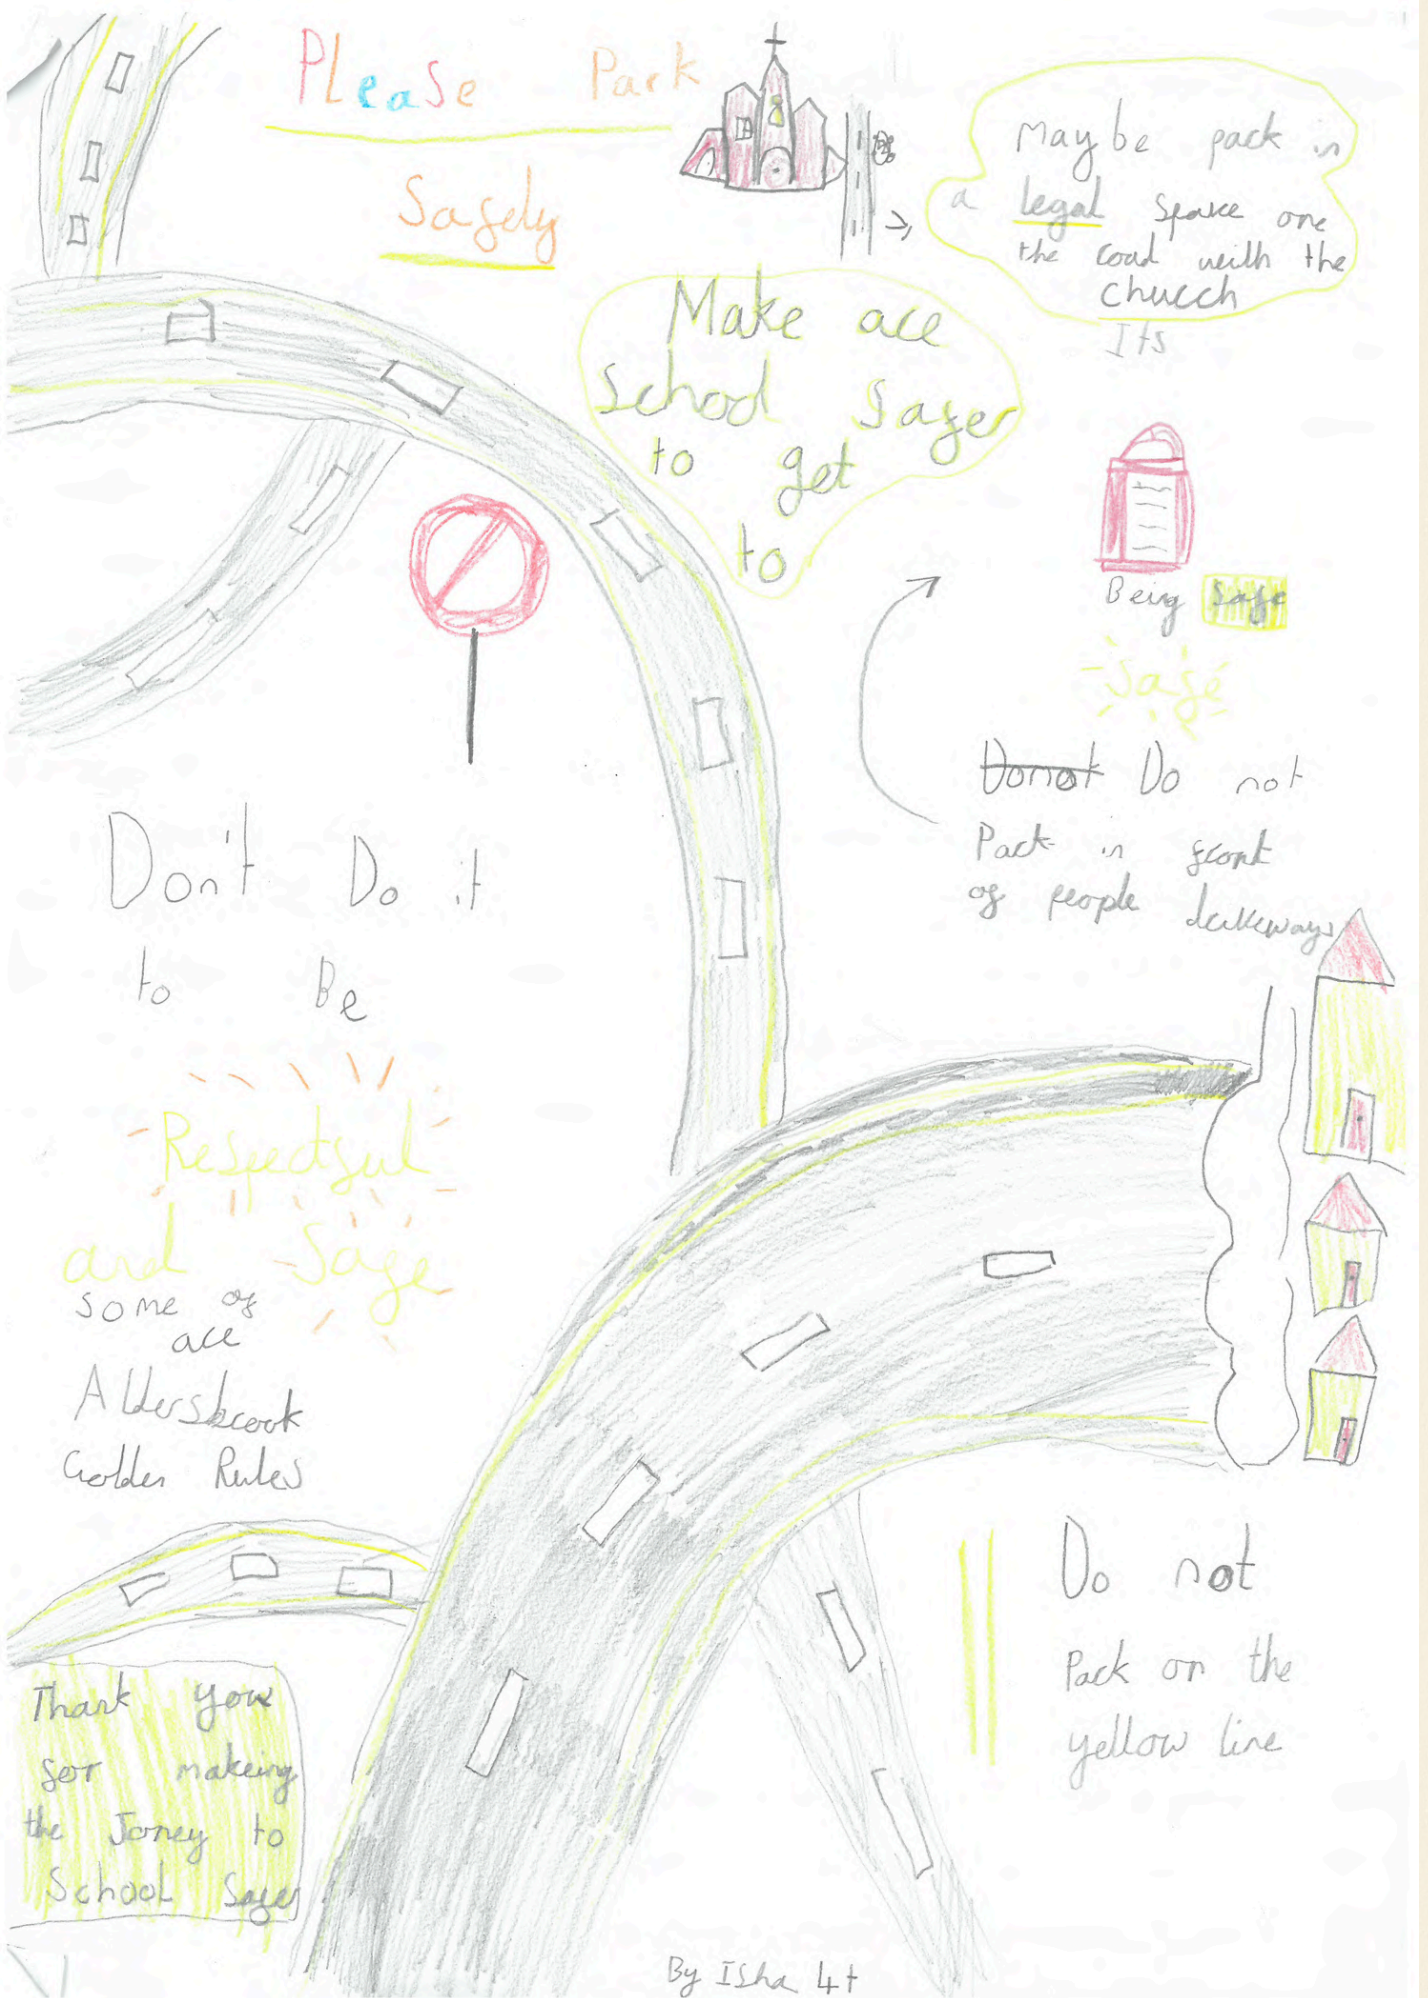 Please Park
Safely
Maybe park in
a legal space one
the road with the
church
Its
Make are
School Safer
to get
to
Being Safe
Safe
Donot Do not
Park in front
of people driveways
Don't Do it
to Be
Respectful
and Safe
some of
are
Aldersbrook
Golden Rules
Do not
Park on the
yellow line
Thank you
for makeing
the Joney to
School Safer
By Isha 4t